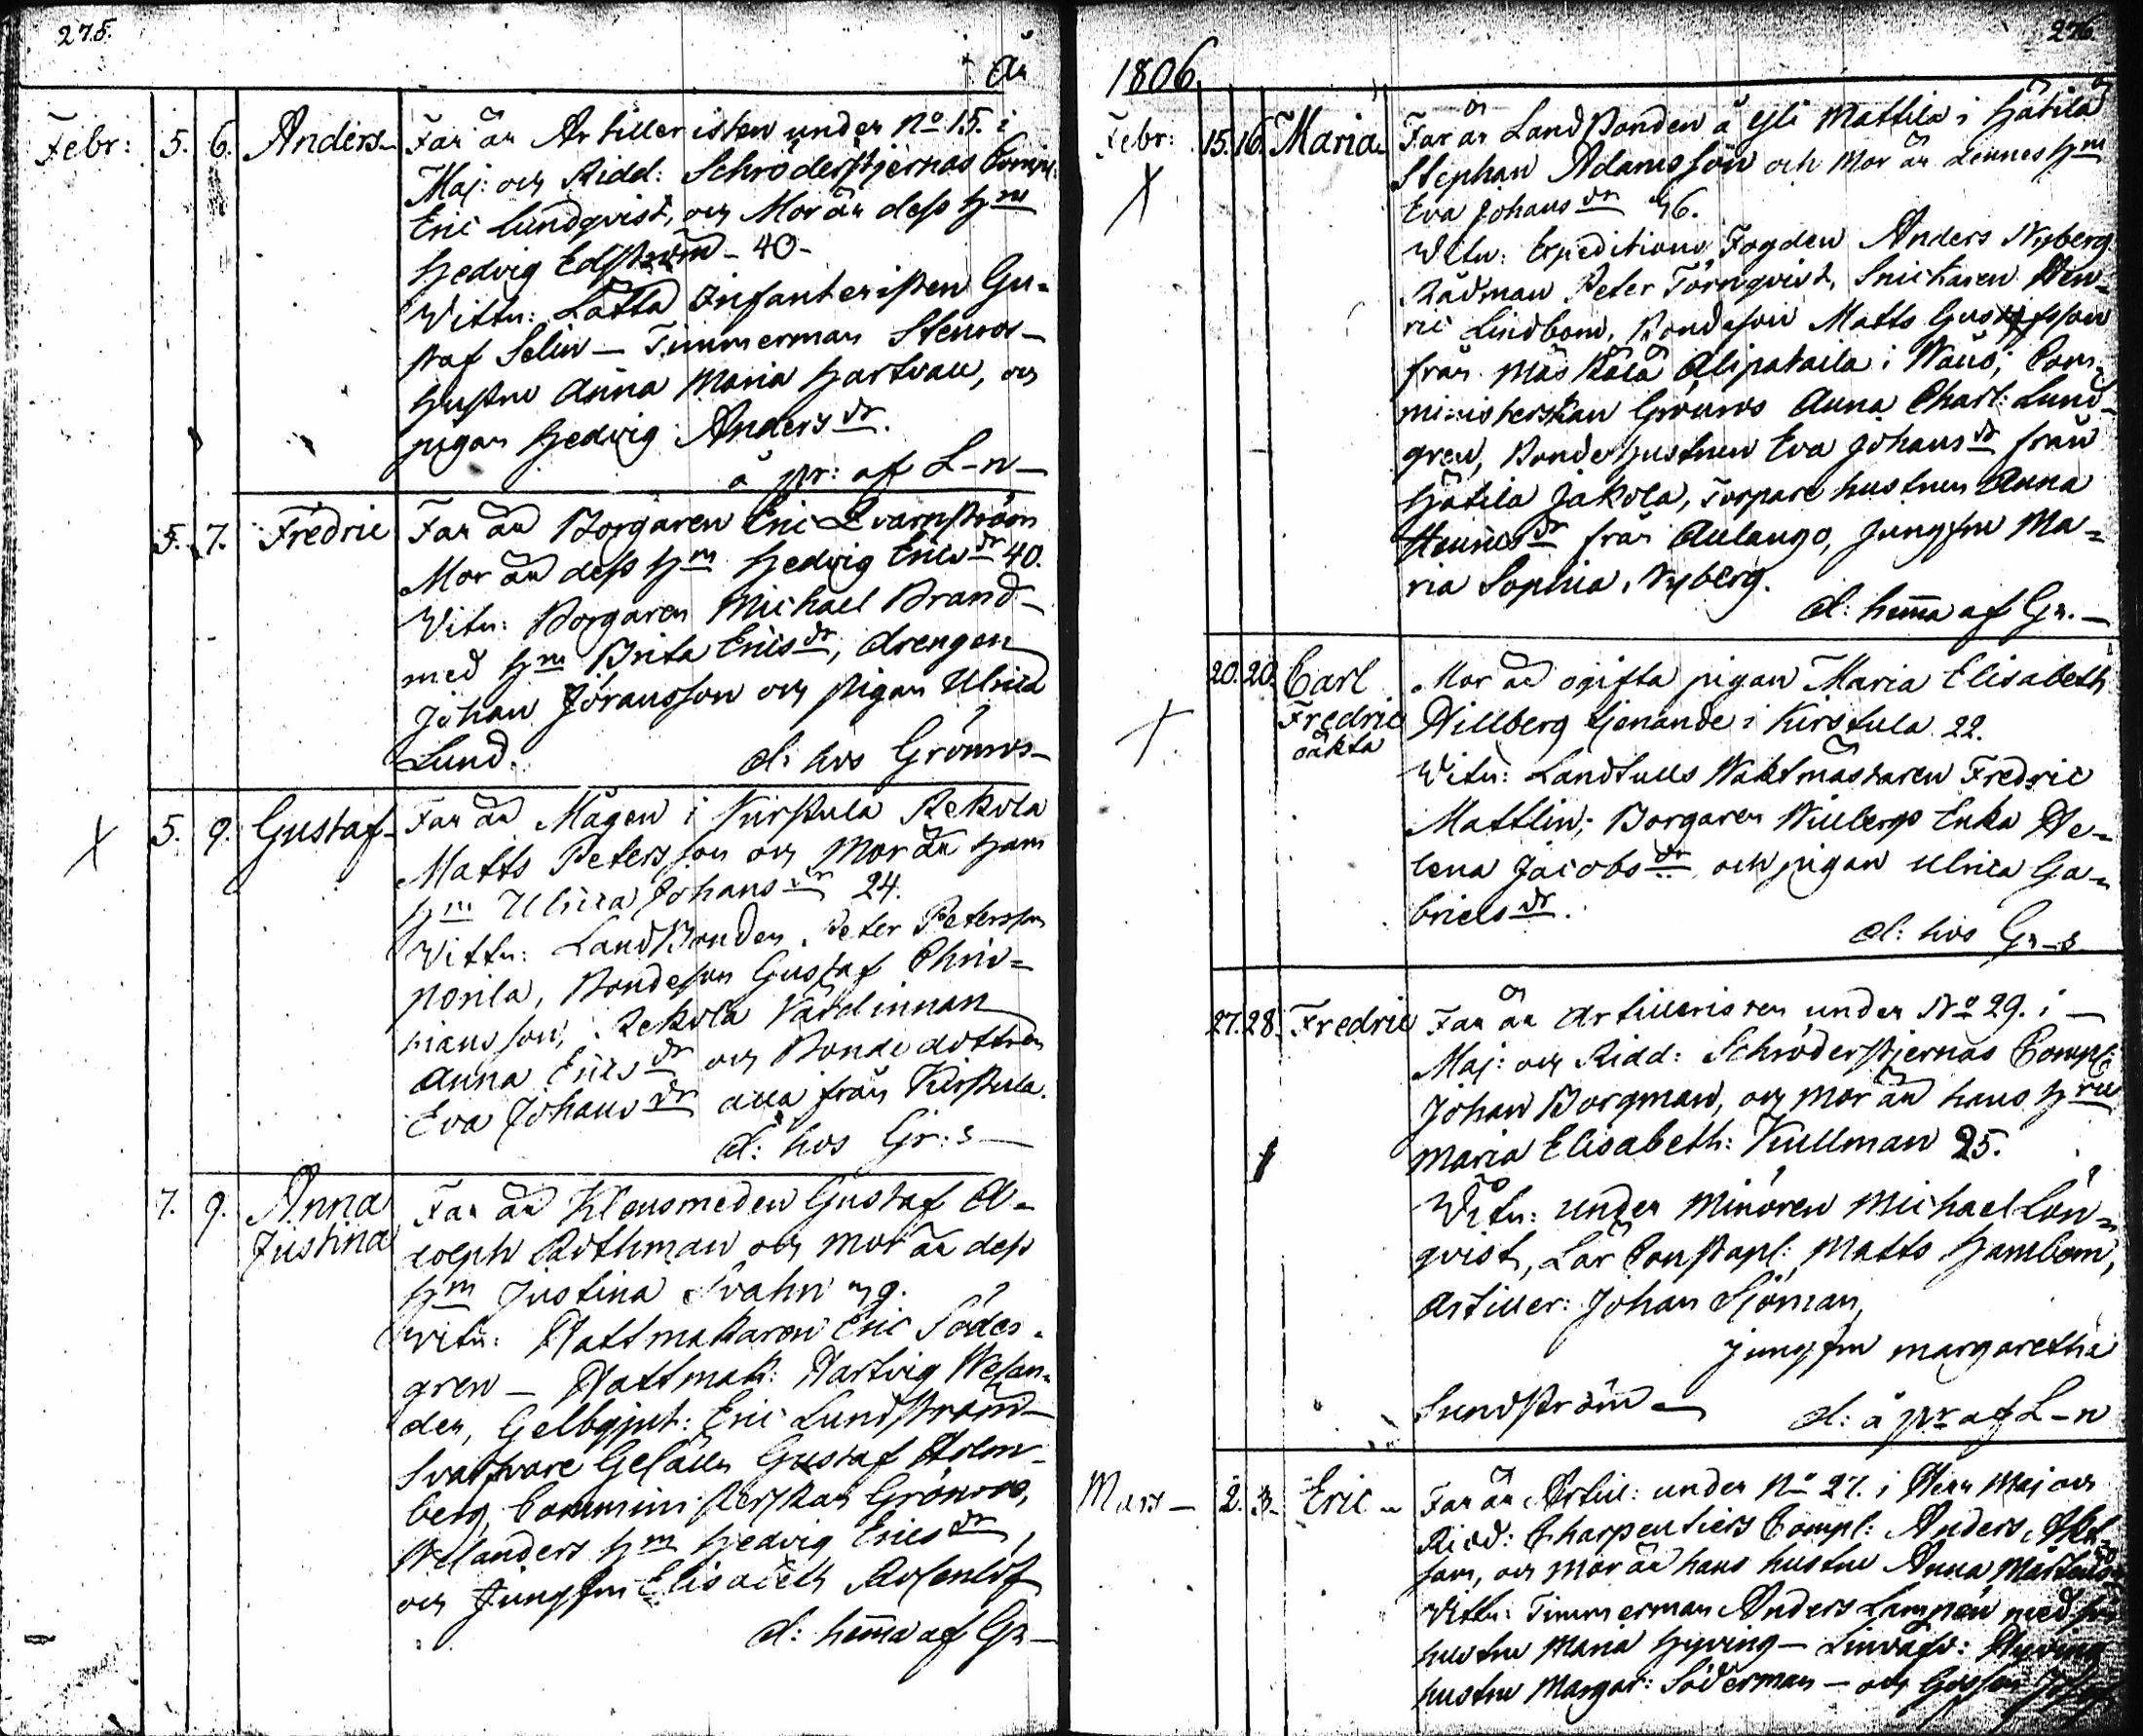 275.
År
Febr: 5. 6. Anders
Far är Artilleristen under No 15. i
Maj: och Ridd: Schröderstjernas Comp:
Eric Lundqvist, och Mor är dess H^m
Hedvig Edström - 40 -
Vittn: Infanteristen Gu=
staf Selin - Timmerman Stenros -
Hustru Anna Maria Hartvall, och
pigan Hedvig Anders dr.
å pr: af L-n-
5. 7. Fredric
Far är Borgaren Eric Qvarnström
Mor är dess H^m Hedvig Erics dr 40.
Vitn: Borgaren Michael Brand
med H^m Brita Erics dr, drengen
Johan Jöransson och pigan Ulrica
Lund.
d: hos Grönros -
5. 9. Gustaf
Far är Mågen i Kirstula Rekola
Matts Petersson och Mor är hans
H^m Ulrica Johans dr 24.
Vittn: Landbonden Peter Petersson
Bondeson Gustaf Chris=
tiansson, Rekola Värdinnan
Anna Erics dr och Bonde dottren
Eva Johans dr alla från Kirstula.
d: hos Gr:s -
7. 9. Anna
Justina
Far är Klensmeden Gustaf A=
dolph Rothman och mor är dess
H^m Justina Svahn 29.
Vitn: Hattmakaren Eric Söder=
gren - Hattmak: Hartvig Welan=
der, Gelbgjut: Eric Lundström
Svarfvare Gesällen Gustaf Holm=
berg, Comministerskan Grönros,
Welanders H^m Hedvig Erics dr,
och Jungfru Elisabeth Rosenlöf
d: hemma af Gr -
276
1806.
Febr: 15. 16. Maria
Far är Landbonden å Yli Mattila i Hätilä
Stephan Adamsson och Mor är dennes H^m
Eva Johans dr 46.
Witn: Expeditions Fogden Anders Nyberg
Rådman Peter Törnqvist, Snickaren Hen=
ric Lindbom, Bondeson Matts Gustafsson
från Alipataila i Wånå; Com=
ministerskan Grönros Anna Charl: Lund=
gren, Bonde hustrun Eva Johans dr från
Hätilä Jakola, Torpare hustrun Anna
Henrics dr från Aulango, Jungfru Ma=
ria Sophia Nyberg.
d: hemma af Gr. -
20. 20. Carl
Fredric
oäkta
Mor är ogifta pigan Maria Elisabeth
Willberg tjenande i Kirstula 22.
Witn: Landtulls Waktmästaren Fredric
Mattlin; Borgaren Willbergs Enka He=
lena Jacobs dr och pigan Ulrica Ga=
briels dr.
d: hos Gr-s
27. 28. Fredric
Far är Artilleristen under No 29. i -
Maj: och Ridd: Schröderstjernas Comp:
Johan Borgman, och mor är hans H^ru
Maria Elisabeth Kullman 25.
Witn: under Minören Michael Lön=
qvist, Lär Constapl: Matts Hambom,
Artiller: Johan Sjöman,
Jungfru Margaretha
Sundström
d: å pr af L-n
Mars - 2. 3. Eric
Far är Artill: under No 27. i Herr Maj och
Ridd: Charpentiers Comp: Anders
och mor är hans hustru Anna Mårtens
Vittn: Timmerman Anders Lampén med
hustru Maria Hyving -
hustru Margar: Söderman - och Gossen